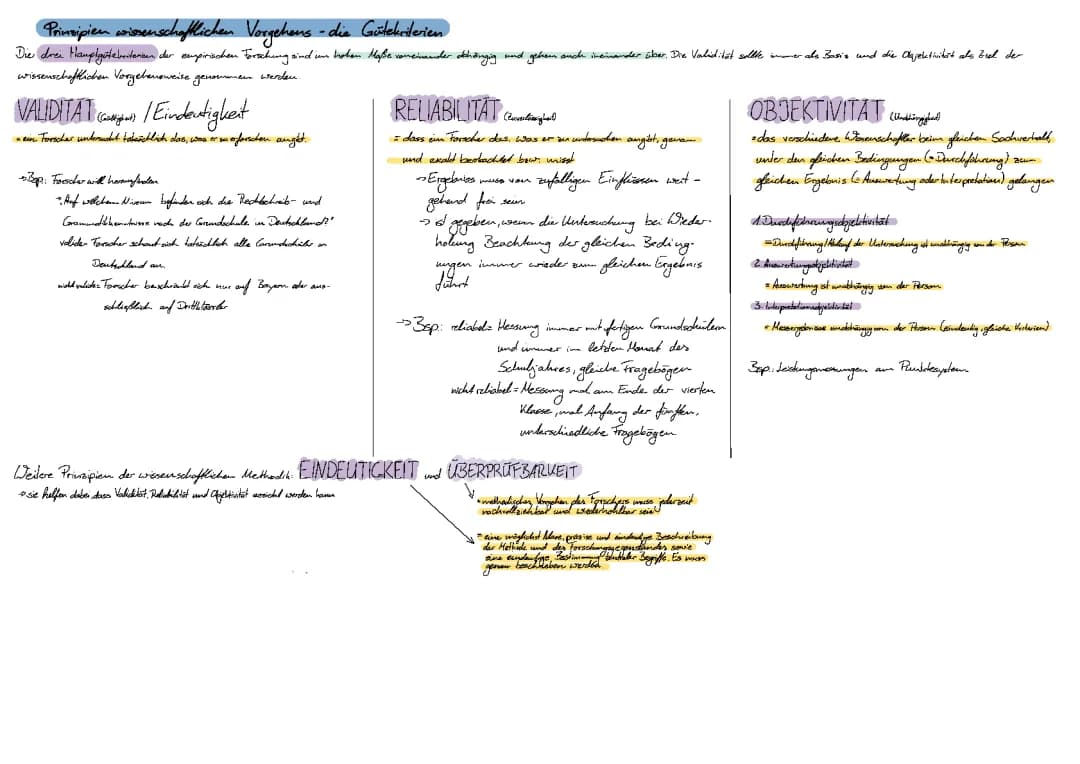 Prinzipien wissenschaftlichen Vorgehens - die Gütekriterien
Die drei Hauptgütekriterien der empirischen Forschung sind im hohen Maße voneinander abhängig und gehen auch ineinander über. Die Validität sollte immer als Basis und die Objektivität als Ziel der
wissenschaftlichen Vorgehensweise genommen werden.
VALIDITÄT (Gültigkeit) / Eindeutigkeit
= ein Forscher untersucht tatsächlich das, was er zu erforschen angibt.
→ Bsp: Forscher will herausfinden
"Auf welchem Niveau befinden sich die Rechtschreib- und
Grammatikkenntnisse nach der Grundschule in Deutschland?"
valide = Forscher schaut sich tatsächlich alle Grundschüler in
Deutschland an.
nicht valide = Forscher beschränkt sich nur auf Bayern oder aus-
schließlich auf Drittklässler
RELIABILITÄT (Zuverlässigkeit)
= dass ein Forscher das, was er zu untersuchen angibt, genau
und exakt beobachtet bzw. misst
→ Ergebnies muss von zufälligen Einflüssen weit-
gehend frei sein
→ ist gegeben, wenn die Untersuchung bei Wieder-
holung Beachtung der gleichen Beding-
ungen immer wieder zum gleichen Ergebnis
führt
→ Bsp: reliabel = Messung immer mit fertigen Grundschülern
und immer im letzten Monat des
Schuljahres, gleiche Fragebögen
nicht reliabel = Messung mal am Ende der vierten
Klasse, mal Anfang der fünften,
unterschiedliche Fragebögen
OBJEKTIVITÄT (Unabhängigkeit)
= das verschiedene Wissenschaftler beim gleichen Sachverhalt,
unter den gleichen Bedingungen (= Durchführung) zum
gleichen Ergebnis (= Auswertung oder Interpretation) gelangen
1. Durchführungsobjektivität
= Durchführung/Ablauf der Untersuchung ist unabhängig von der Person
2. Auswertungsobjektivität
= Auswertung ist unabhängig von der Person
3. Interpretationsobjektivität
= Messergebnisse unabhängig von der Person (eindeutig, gleiche Kriterien)
Bsp: Leistungsmessungen am Punktesystem
Weitere Prinzipien der wissenschaftlichen Methodik: EINDEUTIGKEIT und ÜBERPRÜFBARKEIT
→ sie helfen dabei, dass Validität, Reliabilität und Objektivität erreicht werden kann
= methodisches Vorgehen des Forschers muss jederzeit
nachvollziehbar und wiederholbar sein
= eine möglichst klare, präzise und eindeutige Beschreibung
der Methode und des Forschungsgegenstandes sowie
eine eindeutige Bestimmung zentraler Begriffe. Es muss
genau beschrieben werden.